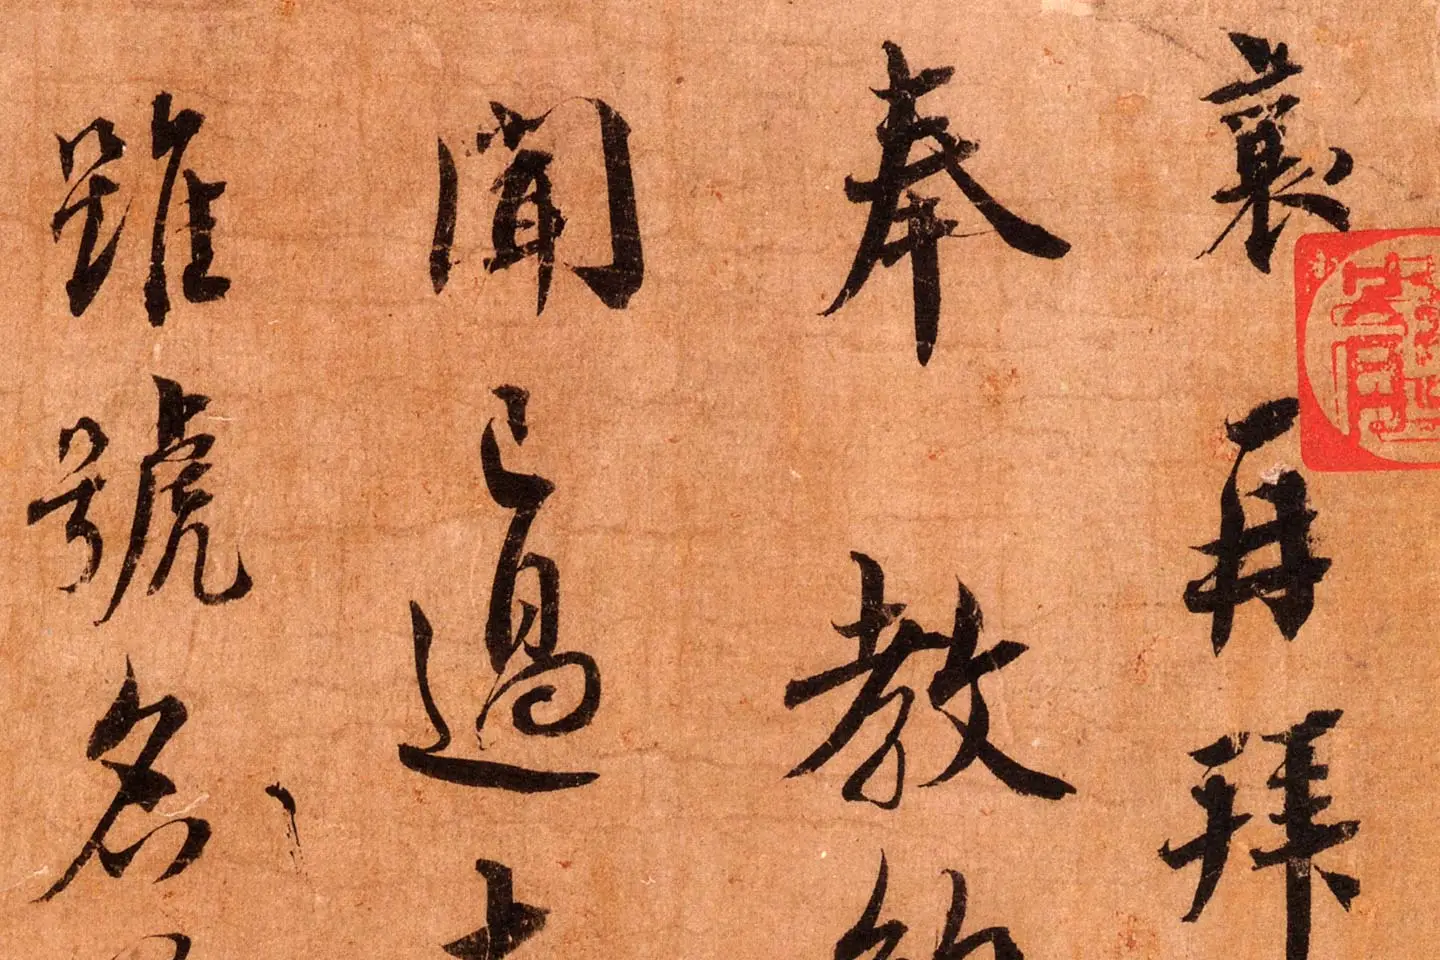 襄再拜
奉教
聞已過
雖號名